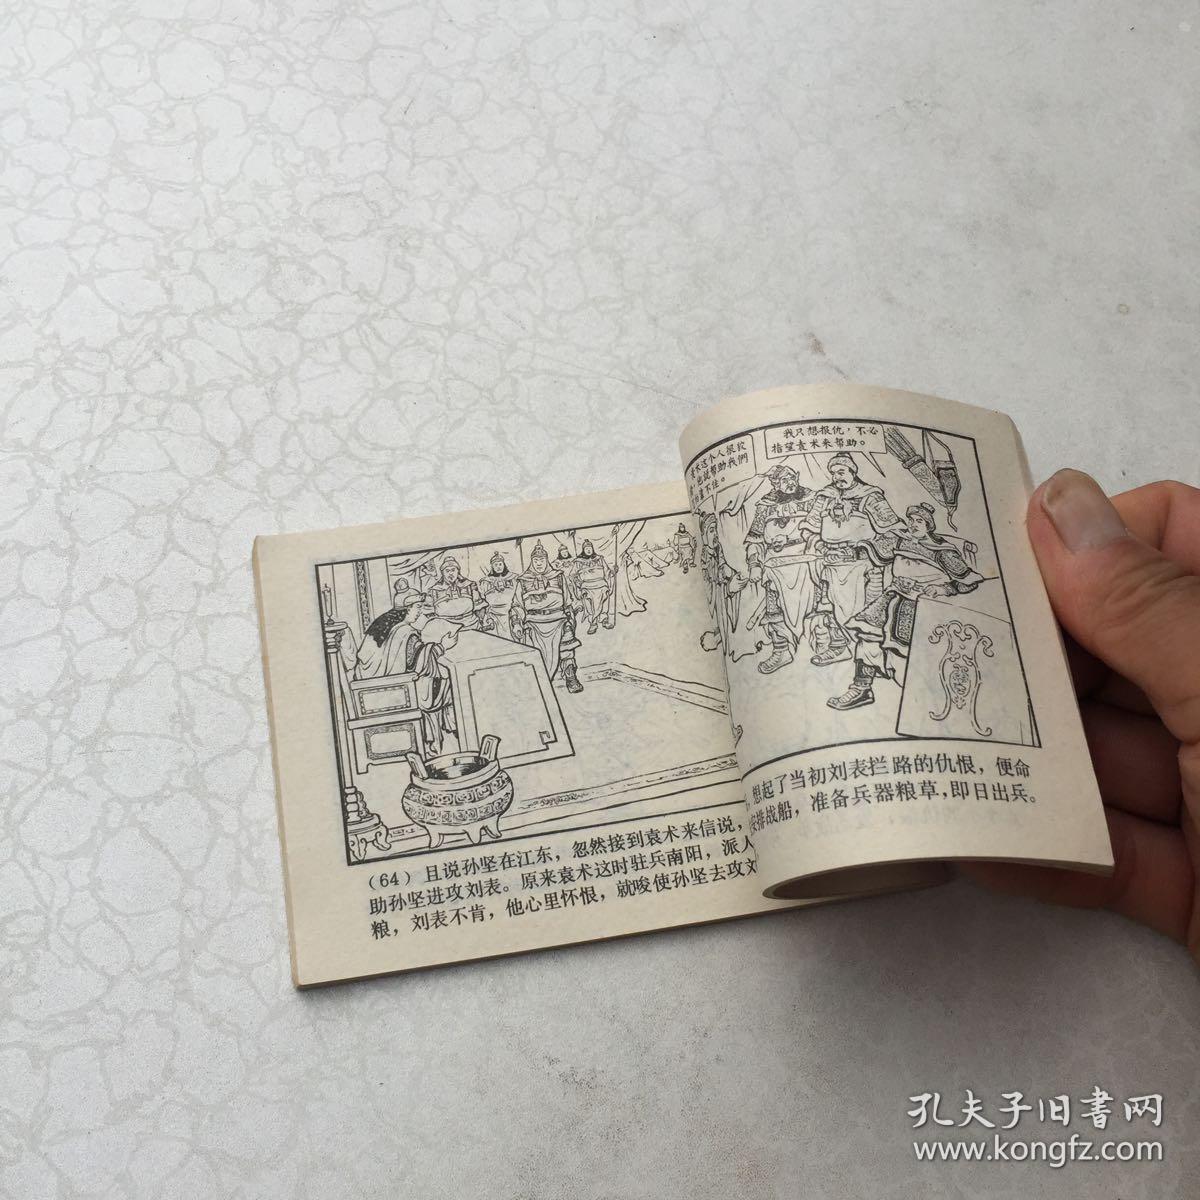 术这个人很狡
说帮助我们
靠不住。
我只想报仇，不必
指望袁术来帮助。
想起了当初刘表拦路的仇恨，便命
安排战船，准备兵器粮草，即日出兵。
(64) 且说孙坚在江东，忽然接到袁术来信说，
助孙坚进攻刘表。原来袁术这时驻兵南阳，派人
粮，刘表不肯，他心里怀恨，就唆使孙坚去攻刘
孔夫子旧書网
www.kongfz.com